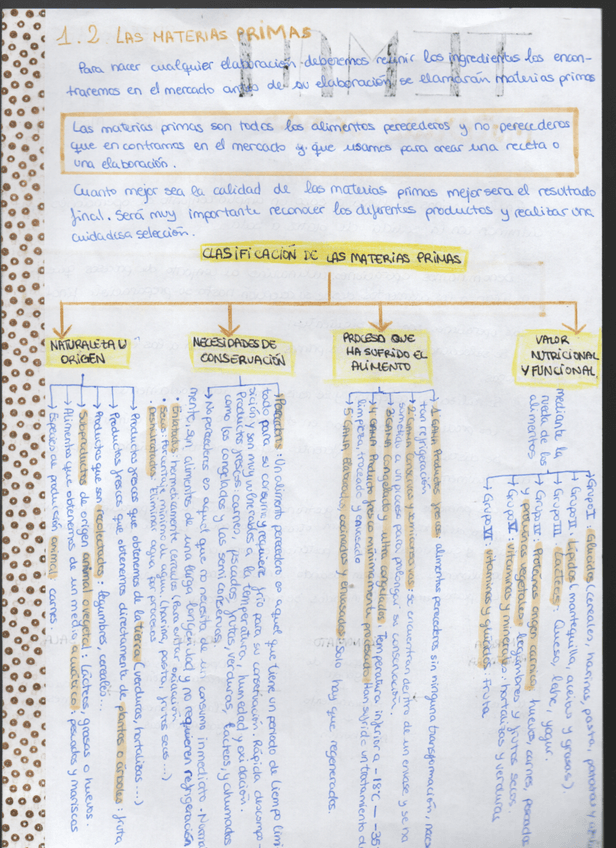 1.2 LAS MATERIAS PRIMAS
Para hacer cualquier elaboración deberemos reunir los ingredientes los encon-
traremos en el mercado antes de su elaboración se llamarán materias primas
Las materias primas son todos los alimentos perecederos y no perecederos
que encontramos en el mercado y que usamos para crear una receta o
una elaboración.
Cuanto mejor sea la calidad de las materias primas mejor sera el resultado
final. Será muy importante reconocer los diferentes productos y realizar una
cuidadosa selección.
CLASIFICACIÓN DE LAS MATERIAS PRIMAS
NATURALEZA U
ORIGEN
Productos frescos que obtenemos de la tierra (verduras, hortalizas...)
Productos frescos que obtenemos directamente de plantas o árboles: fruta
Productos que son recolectados: legumbres, cereales...
Subproductos de origen animal o vegetal: lácteos, grasas o huevos.
Alimentos que obtenemos de un medio acuático: pescados y mariscos
Especies de producción animal: carnes.
NECESIDADES DE
CONSERVACIÓN
Perecederos: Un alimento perecedero es aquel que tiene un periodo de tiempo limi
tado para su consumo y requiere frío para su conservación. Rápida descompo-
sición y son muy vulnerables a la temperatura, humedad y oxidación.
Productos frescos carnes, pescados, frutas, verduras, lácteos, y ahumados
como los congelados y las semiconservas.
No perecederos es aquel que no necesita de un consumo inmediato. Norma
mente, son alimentos de una larga longevidad y no requieren refrigeración
Enlatados: herméticamente cerrados (Para evitar oxidación)
secos: Porcentaje mínimo de agua (harinas, pasta, frutos secos...)
Deshidratados: Eliminar agua por procesos
PROCESO QUE
HA SUFRIDO EL
ALIMENTO
1. GAMA Productos frescos: alimentos perecederos sin ninguna transformación, neces
tan refrigeración
2. GAMA Conservas y semiconservas: se encuentran dentro de un envase y se ha
sometido a un proceso para prolongar su conservación.
3. GAMA Congelado y ultra congelados: Temperatura inferior a -18ºC - -35
4. GAMA Producto fresco mínimamente procesado: Han sufrido un tratamiento de
limpieza, troceado y envasado
5 GAMA Elaborados, cocinados y envasados: Solo hay que regenerarlos.
VALOR
NUTRICIONAL
Y FUNCIONAL
mediante la
rueda de los
alimentos
Grupo I: Glúcidos (cereales, harinas, pasta, patatas y
Grupo II: Lípidos (mantequilla, aceites y grasas).
Grupo III: Lácteos: Queso, leche, yogur.
Grupo Proteinas origen carnico, huevos, carnes, pescados
y proteinas vegetales: legumbres y frutos secos.
Grupo V: vitaminas y minerales: hortalizas y verduras
Grupo VI: vitaminas y glúcidos: fruta